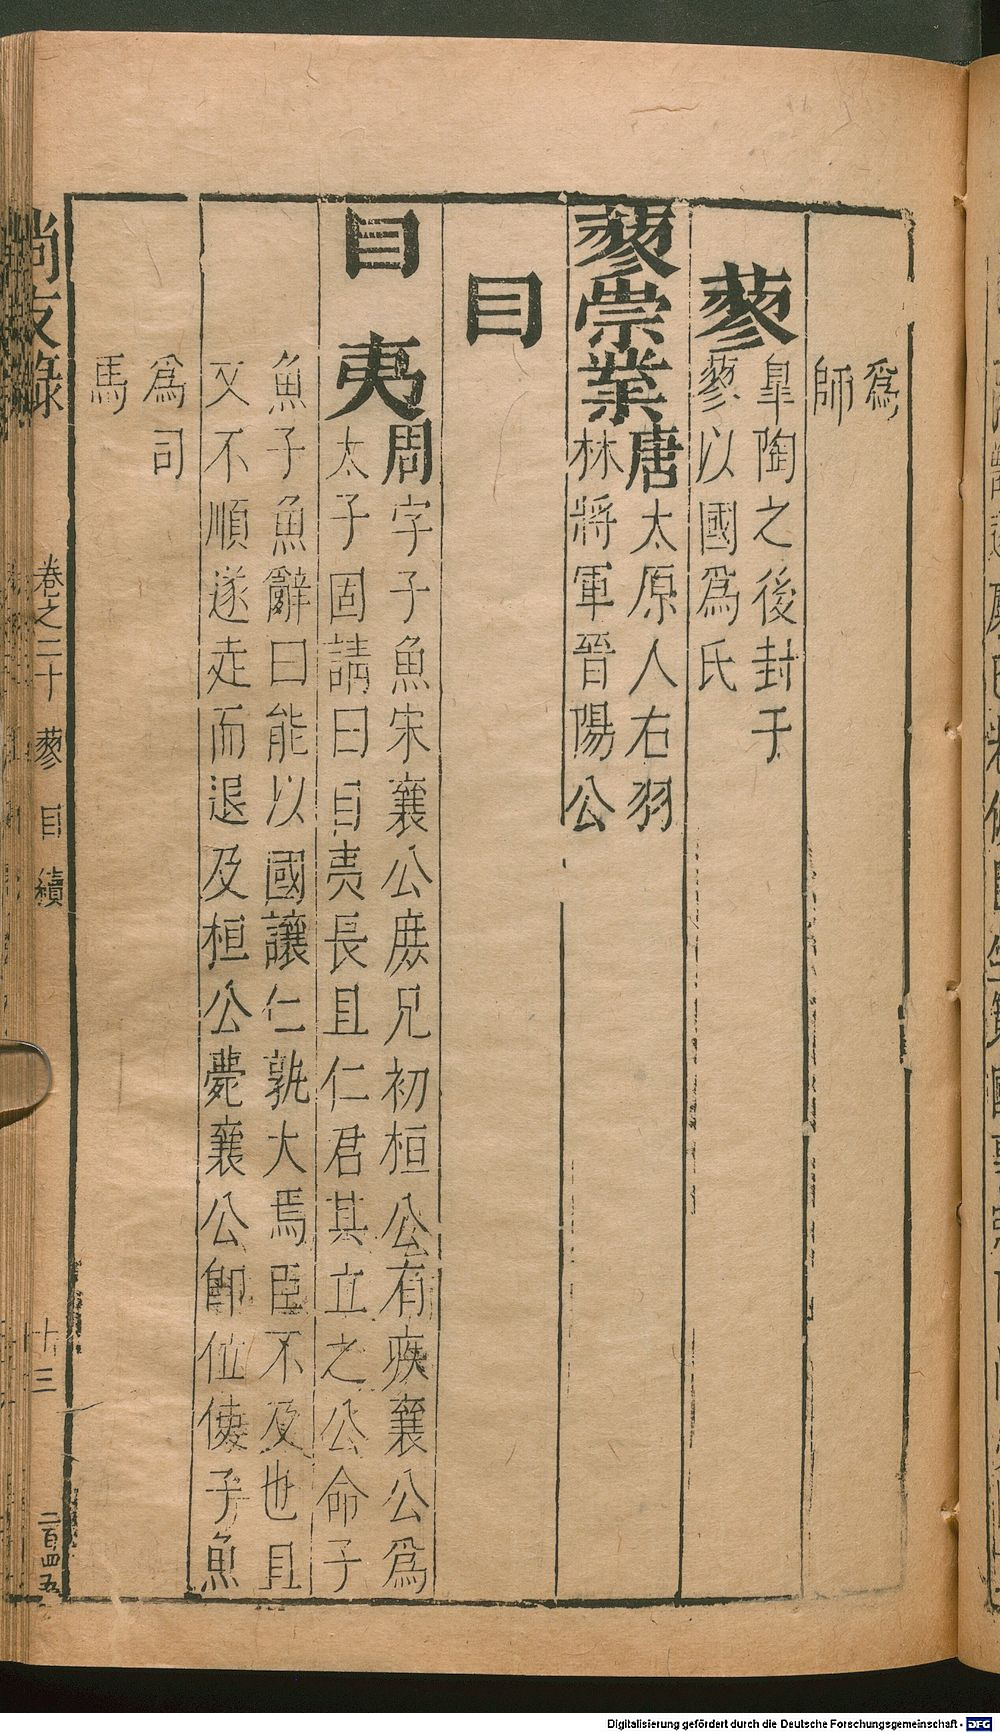 爲
師
蓼
皐陶之後封于
蓼以國爲氏
蓼崇業
唐太原人右羽
林將軍晉陽公
目
目夷
周字子魚宋襄公庶兄初桓公有疾襄公爲
太子固請曰目夷長且仁君其立之公命子
魚子魚辭曰能以國讓仁孰大焉臣不及也且
又不順遂走而退及桓公薨襄公卽位使子魚
爲司
馬
尚友錄 卷之二十 蓼 目 續 十三 二百四五
Digitalisierung gefördert durch die Deutsche Forschungsgemeinschaft - DFG